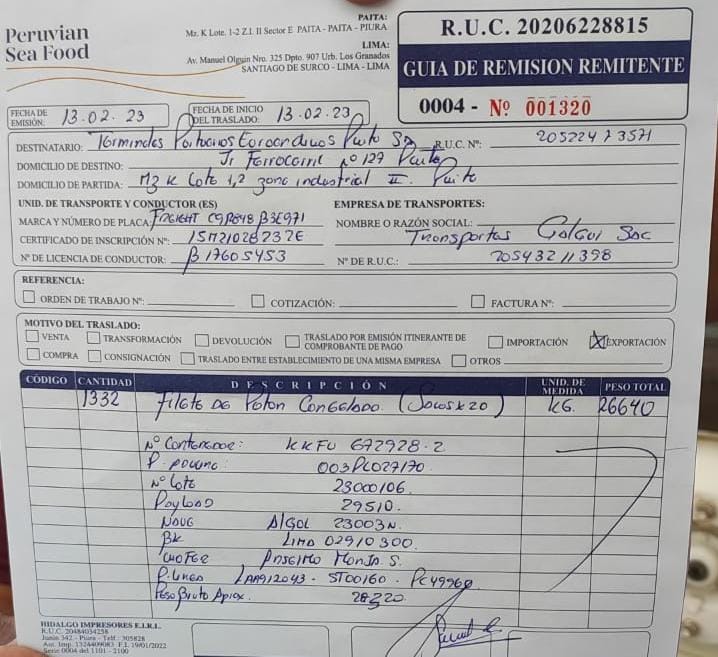 Peruvian
Sea Food
PAITA:
Mz. K Lote. 1-2 Z.I. II Sector E PAITA - PAITA - PIURA
LIMA:
Av. Manuel Olguin Nro. 325 Dpto. 907 Urb. Los Granados
SANTIAGO DE SURCO - LIMA - LIMA
R.U.C. 20206228815
GUIA DE REMISION REMITENTE
0004 - Nº 001320
FECHA DE EMISIÓN: 13.02.23
FECHA DE INICIO DEL TRASLADO: 13.02.23
DESTINATARIO: Terminales Portuarios Euroandinos Paita SA R.U.C. Nº: 20522473571
DOMICILIO DE DESTINO: Jr Ferrocarril nº 127 Paita
DOMICILIO DE PARTIDA: Mz K Lote 1,2 zona industrial II. Paita
UNID. DE TRANSPORTE Y CONDUCTOR (ES)
EMPRESA DE TRANSPORTES:
MARCA Y NÚMERO DE PLACA:
NOMBRE O RAZÓN SOCIAL:
CERTIFICADO DE INSCRIPCIÓN Nº: Transportes SAC
Nº DE LICENCIA DE CONDUCTOR: B17605453
Nº DE R.U.C.: 20543211398
REFERENCIA:
ORDEN DE TRABAJO Nº: COTIZACIÓN: FACTURA Nº:
MOTIVO DEL TRASLADO:
VENTA TRANSFORMACIÓN DEVOLUCIÓN TRASLADO POR EMISIÓN ITINERANTE DE COMPROBANTE DE PAGO IMPORTACIÓN X EXPORTACIÓN
COMPRA CONSIGNACIÓN TRASLADO ENTRE ESTABLECIMIENTO DE UNA MISMA EMPRESA OTROS
CÓDIGO CANTIDAD DESCRIPCIÓN UNID. DE MEDIDA PESO TOTAL
1332 Filete de Poton Congelado (Sacos x 20) KG. 26640
Nº Contenedor: KKFU 672928-2
003PL027170
Nº Lote 23000106
Payload 29510.
Nave Algol 23003N.
BK Lima 02910300.
Chofer Anselmo Monja S.
P. Linea LAA912043 - ST00160 - PC49960
Peso Bruto Aprox.
HIDALGO IMPRESORES E.I.R.L.
R.U.C. 20484034258
Junin 342 - Piura - Telf.: 305828
Aut. Imp. 1324409083 F.I. 19/01/2022
Serie 0004 del 1101 - 2100